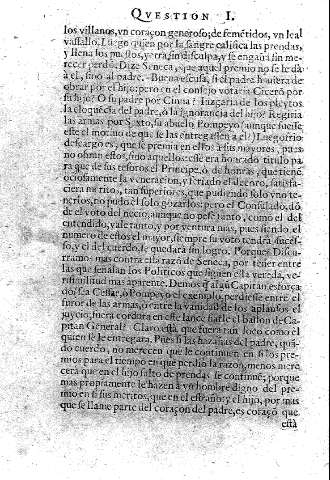 QVESTION I.
los villanos, vn coraçon generoso; de femétidos, vn leal
vassallo. Luego quien por la sangre califica las prendas,
y llena los puestos, yerra sin disculpa, y se engaña sin me-
recer perdó. Dize Seneca, que aquel premio no se le dà
à el, sino al padre. Buena escusa, si el padre huuiera de
obrar por el hijo: pero en el consejo votaria Ciceró por
su hijo? O su padre por Cinna? Iuzgaria de los pleytos
la eloquécia del padre, ò la ignorancia del hijo? Regiria
las armas por Sexto, su abuelo Pompeyo? aunque fuesse
este el motiuo de que se las entregassen à el? Luego friuo
descargo es, que se premia en ellos à sus mayores, para
no obrar estos, sino aquellos: esse era honrado titulo pa
ra que de sus tesoros el Principe, ò de honras, que tiene
ociosamente la veneracion, y feriado el decoro, satisfa-
ciera meritos, tan superiores, que pudiendo solo vno te-
nerlos, no pudo èl solo gozarlos: pero el Consulado, dó
de el voto del necio, aunque no pese tanto, como el del
entendido, vale tanto, y por ventura mas, pues siendo el
numero de estos el mayor, siempre su voto tendrà sucess-
so, y el del cuerdo se quedarà sin logro. Porque Discu-
rramos mas contra esta razó de Seneca, por tener entre
las que señalan los Politicos que siguen esta vereda, ve-
risimilitud mas aparente. Demos q̃ algũ Capitan esforça
do, sea Cesar, ò Pompeyo el exemplo, perdiesse entre el
furor de las armas, ò entre la vanidad de los aplausos el
juyzio, fuera cordura en esse lance fiarle el baston de Ca-
pitan General? Claro està que fuera tan loco como el
quien se le entregara. Pues si las hazañas del padre, quan-
do cuerdo, no merecen que le continuen en si los pre-
mios para el tiempo en que perdió la razon, menos mere
cerà que en el hijo falto de prendas se continuè; porque
mas propiamente se hazen à vn hombre digno del pre-
mio en si sus meritos, que en el estraño; y el hijo, por mas
que se llame parte del coraçon del padre, es coraçó que
està